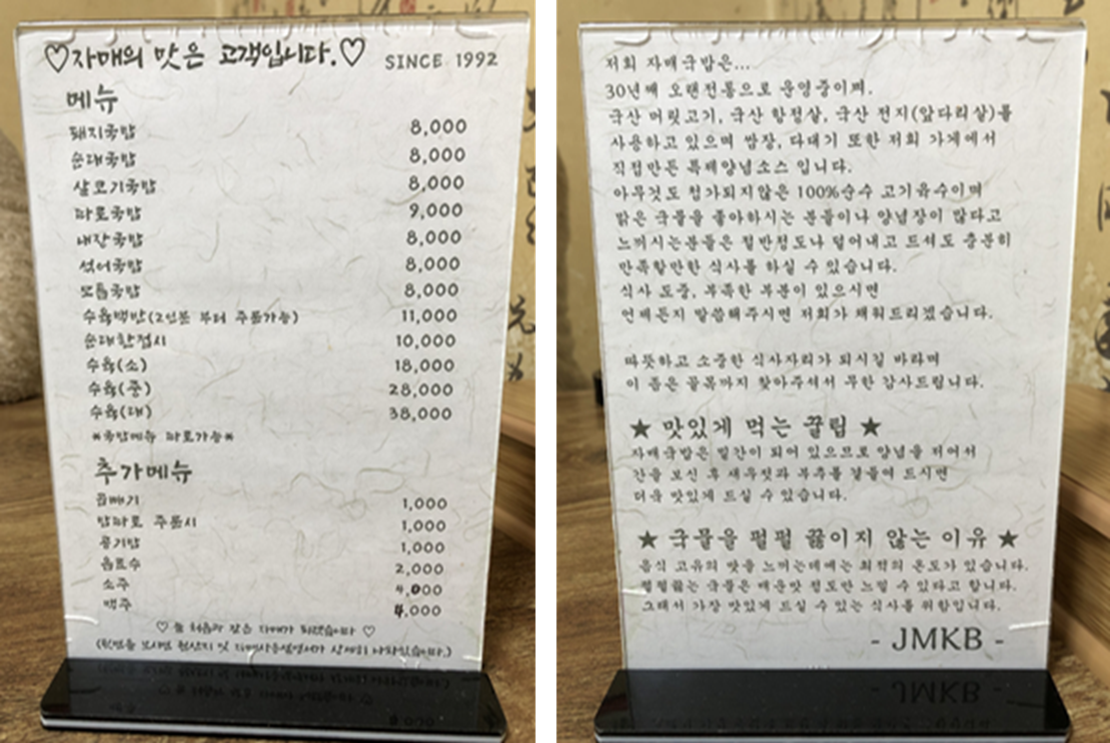 ♡자매의 맛은 고객입니다.♡ SINCE 1992
메뉴
돼지국밥 8,000
순대국밥 8,000
살코기국밥 8,000
따로국밥 9,000
내장국밥 8,000
섞어국밥 8,000
모듬국밥 8,000
수육백반(2인분 부터 주문가능) 11,000
순대한접시 10,000
수육(소) 18,000
수육(중) 28,000
수육(대) 38,000
*국밥메뉴 따로가능*
추가메뉴
곱빼기 1,000
밥따로 주문시 1,000
공기밥 1,000
음료수 2,000
소주 4,000
맥주 4,000
♡ 늘 처음과 같은 자매가 되겠습니다 ♡
(뒷면을 보시면 원산지 및 자매사용설명서가 상세히 나와있습니다.)
저희 자매국밥은...
30년째 오랜전통으로 운영중이며,
국산 머릿고기, 국산 항정살, 국산 전지(앞다리살)를
사용하고 있으며 쌈장, 다대기 또한 저희 가게에서
직접만든 특제양념소스 입니다.
아무것도 첨가되지않은 100%순수 고기육수이며
맑은 국물을 좋아하시는 분들이나 양념장이 많다고
느끼시는분들은 절반정도나 덜어내고 드셔도 충분히
만족할만한 식사를 하실 수 있습니다.
식사 도중, 부족한 부분이 있으시면
언제든지 말씀해주시면 저희가 채워드리겠습니다.
따뜻하고 소중한 식사자리가 되시길 바라며
이 좁은 골목까지 찾아주셔서 무한 감사드립니다.
★ 맛있게 먹는 꿀팁 ★
자매국밥은 밑간이 되어 있으므로 양념을 저어서
간을 보신 후 새우젓과 부추를 곁들여 드시면
더욱 맛있게 드실 수 있습니다.
★ 국물을 펄펄 끓이지 않는 이유 ★
음식 고유의 맛을 느끼는데에는 최적의 온도가 있습니다.
펄펄끓는 국물은 매운맛 정도만 느낄 수 있다고 합니다.
그래서 가장 맛있게 드실 수 있는 식사를 위함입니다.
- JMKB -